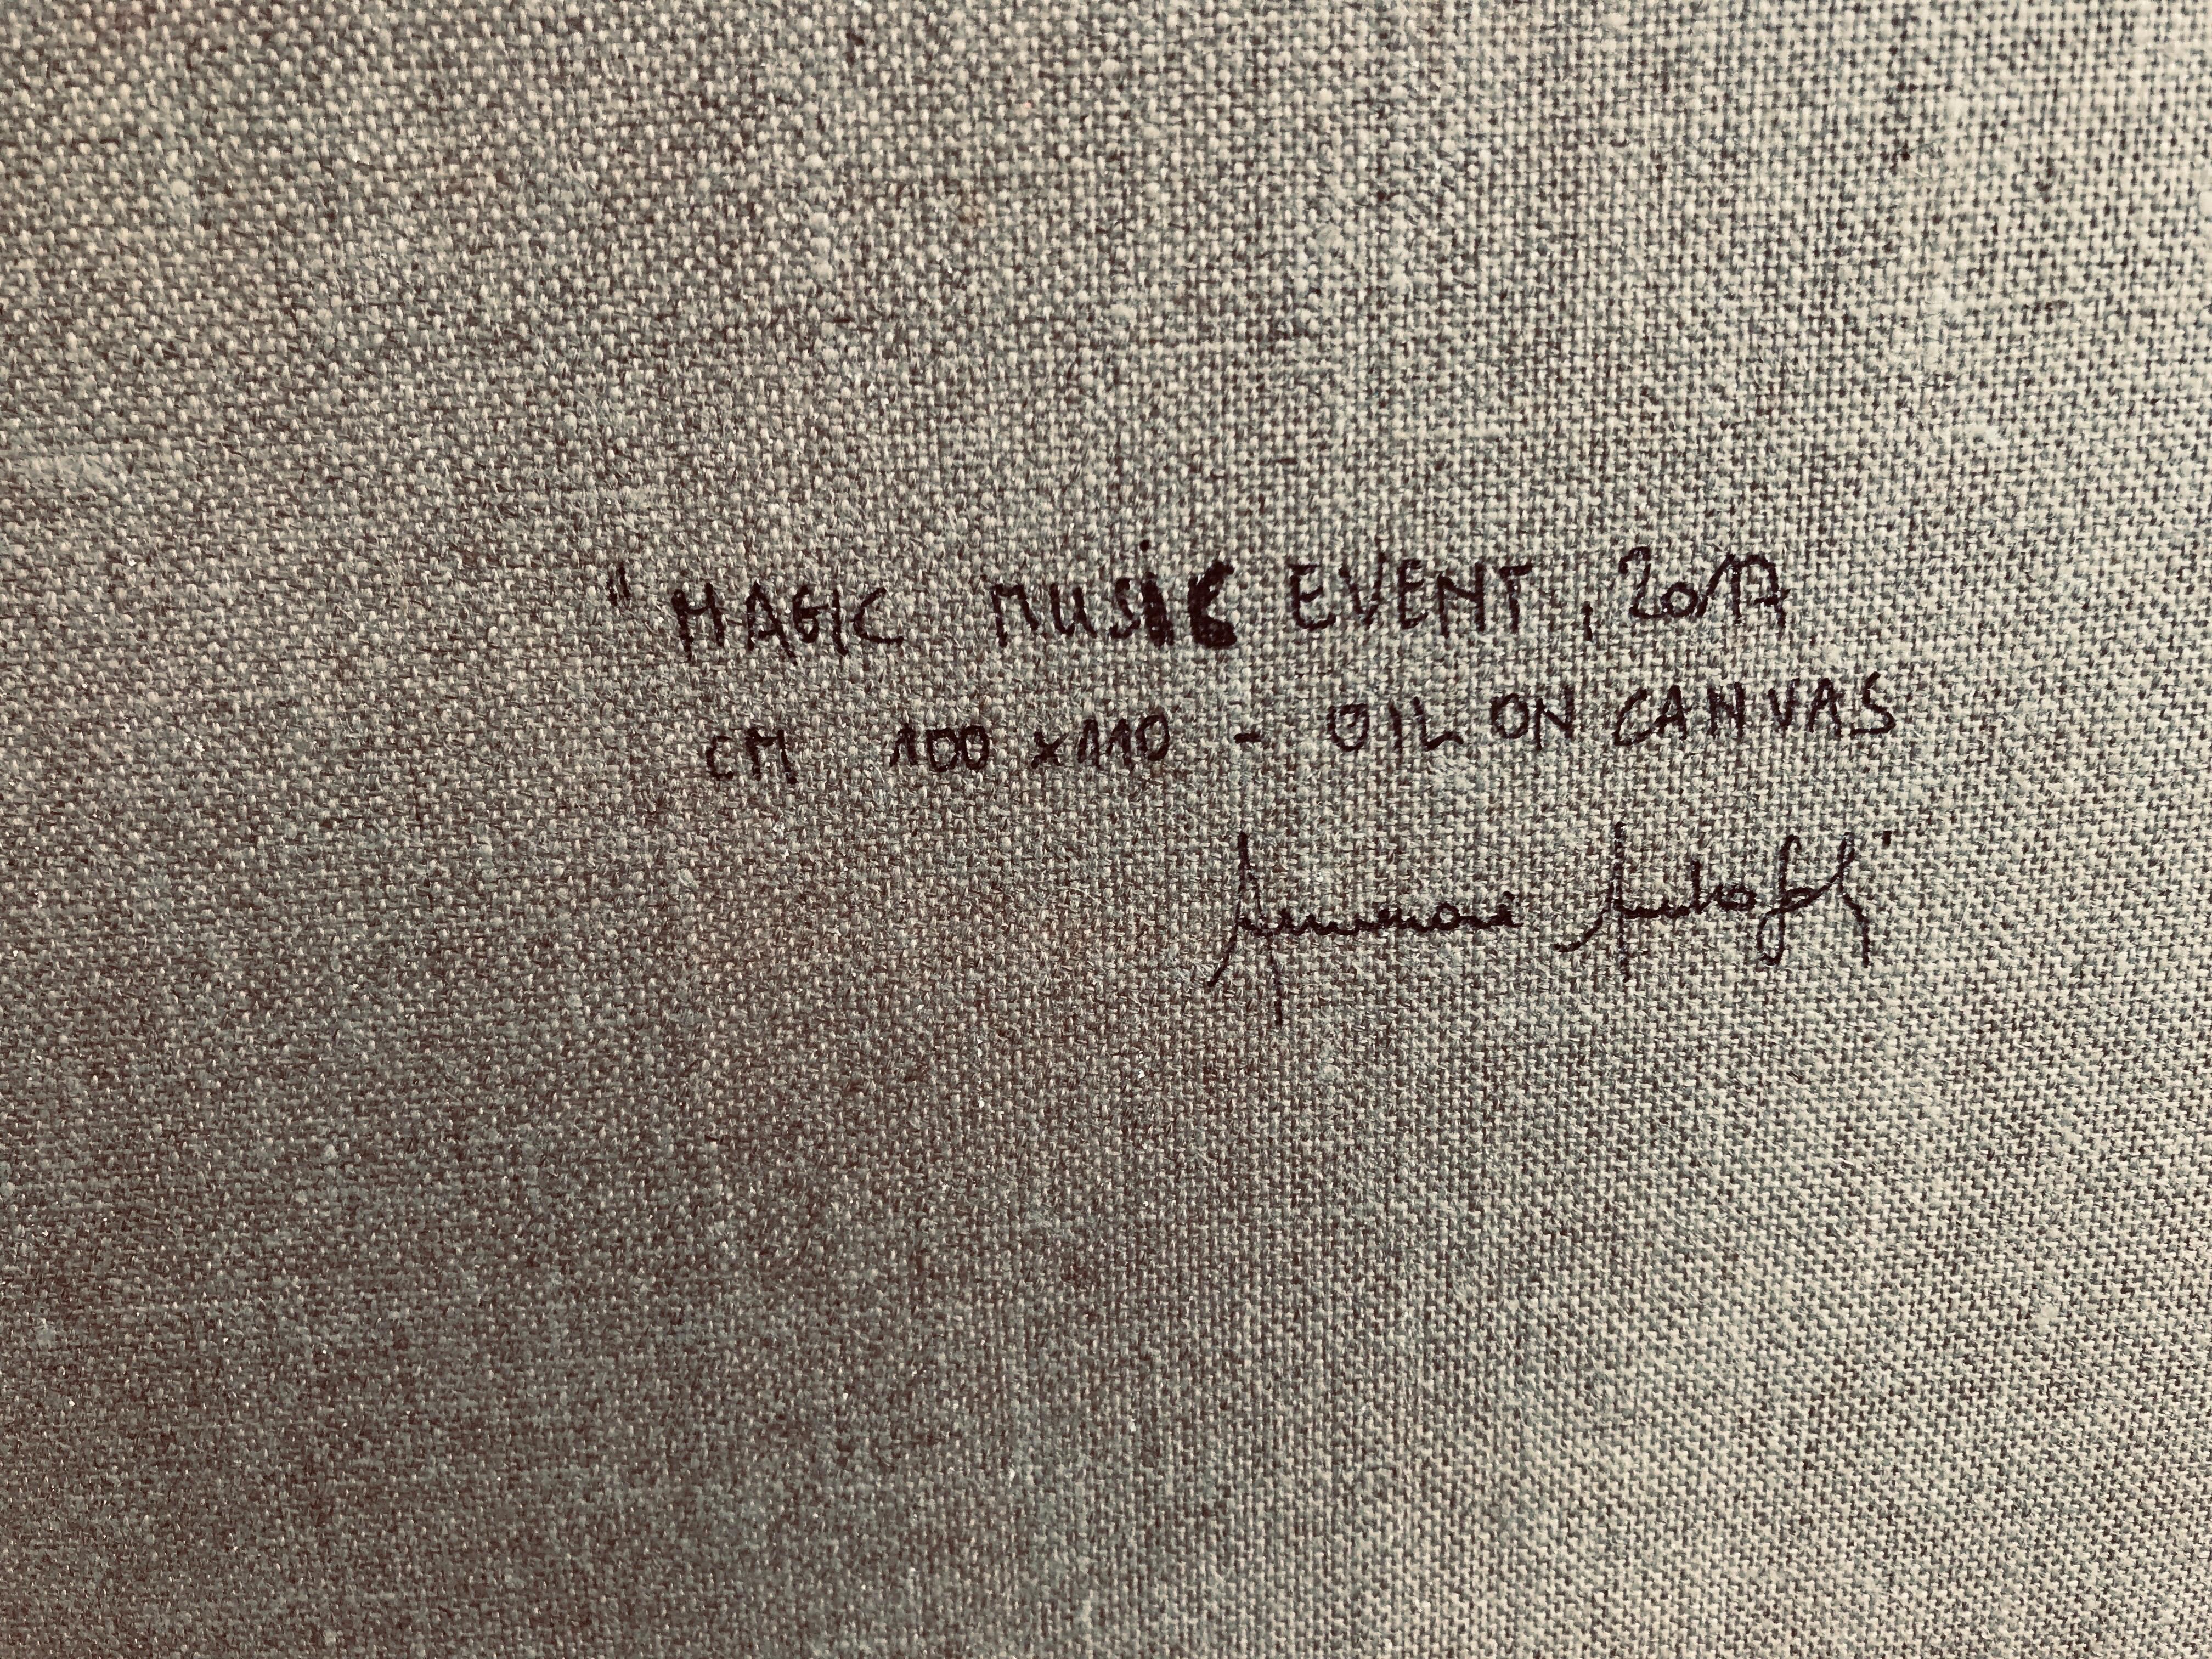 " MAGIC MUSIC EVENT, 2017
CM 100 x 110 - OIL ON CANVAS